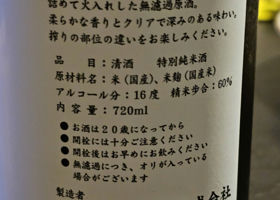 詰めて火入れした無濾過原酒。
柔らかな香りとクリアで深みのある味わい。
搾りの部位の違いをお楽しみください。
品目：清酒　特別純米酒
原材料名：米（国産）、米麹（国産米）
アルコール分：16度　精米歩合：60％
内容量：720ml
●お酒は20歳になってから
●開栓には十分ご注意ください
●開栓後はお早めにお飲みください
●無濾過につき、オリが入っている
場合がございます
製造者
会社